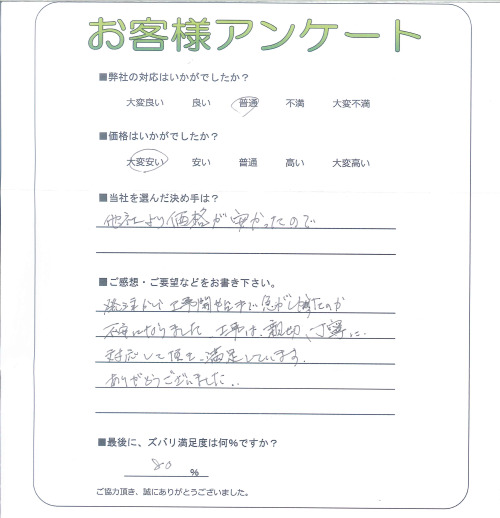 お客様アンケート
■弊社の対応はいかがでしたか？
大変良い 良い 普通 不満 大変不満
■価格はいかがでしたか？
大変安い 安い 普通 高い 大変高い
■当社を選んだ決め手は？
他社より価格が安かったので
■ご感想・ご要望などをお書き下さい。
工事
不安になりました 工事は、親切、丁寧に
対応して頂き、満足しています。
ありがとうございました..
■最後に、ズバリ満足度は何％ですか？
80 ％
ご協力頂き、誠にありがとうございました。